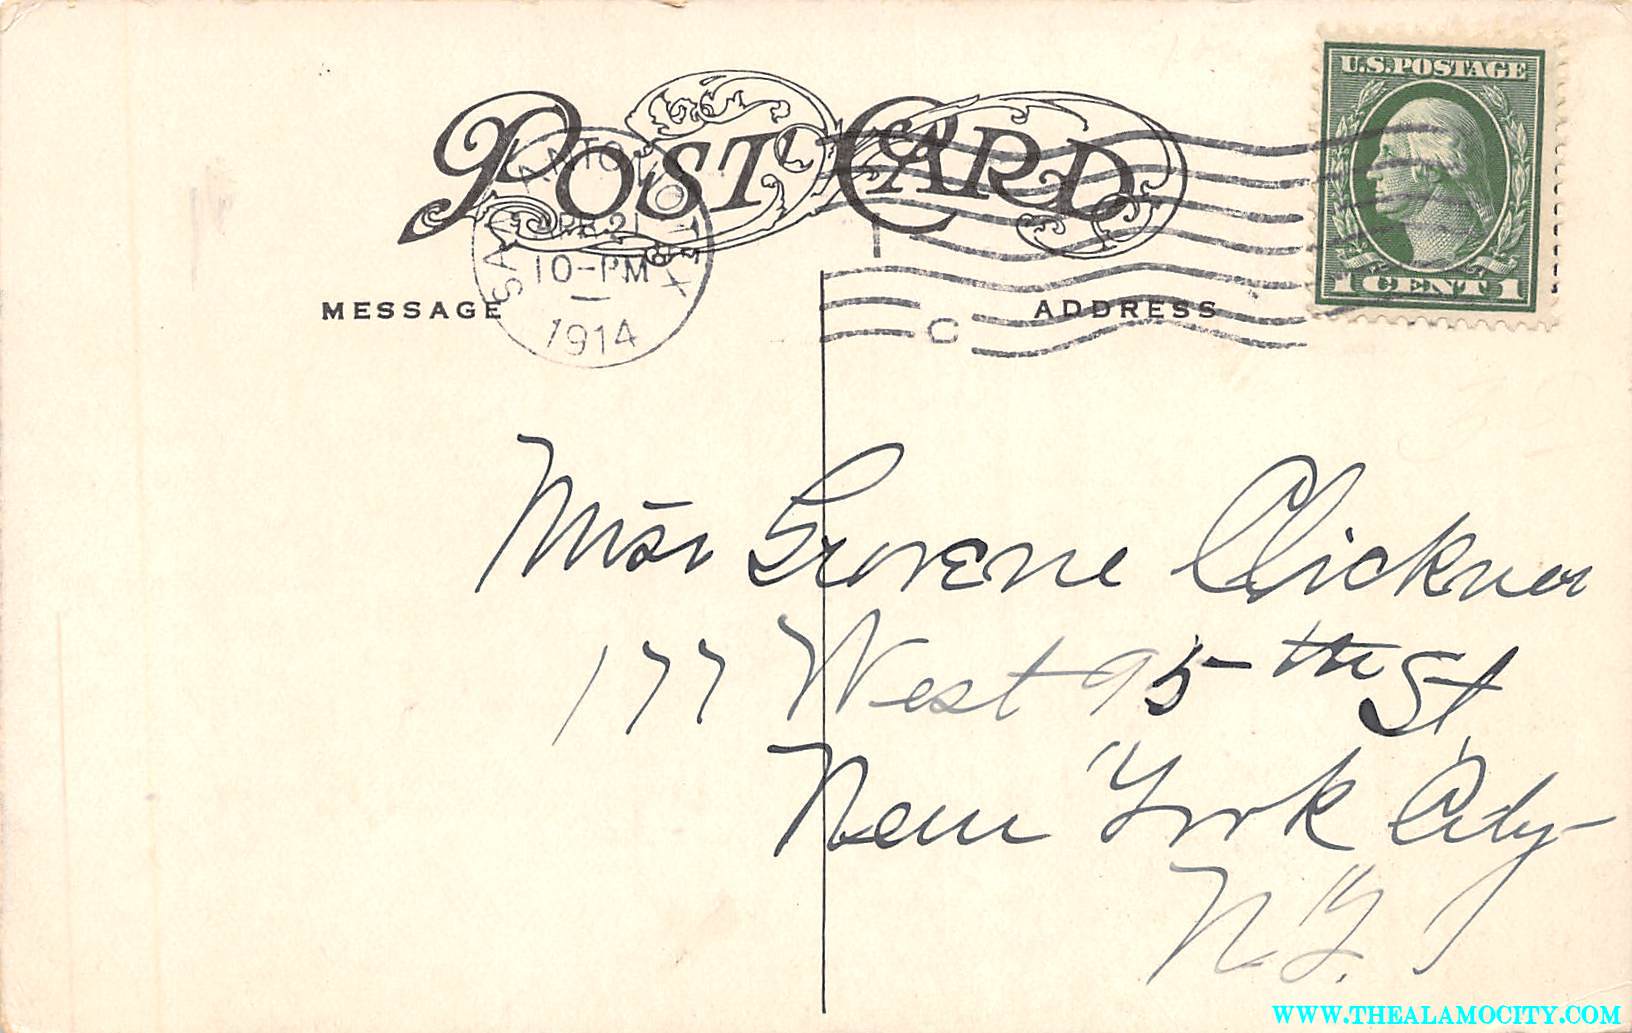 POST CARD
U.S. POSTAGE
1 CENT 1
SAN ANTONIO TEX
APR 21
10-PM
1914
C
MESSAGE
ADDRESS
Miss Clickner
177 West 95th St
New York City
N.Y.
WWW.THEALAMOCITY.COM